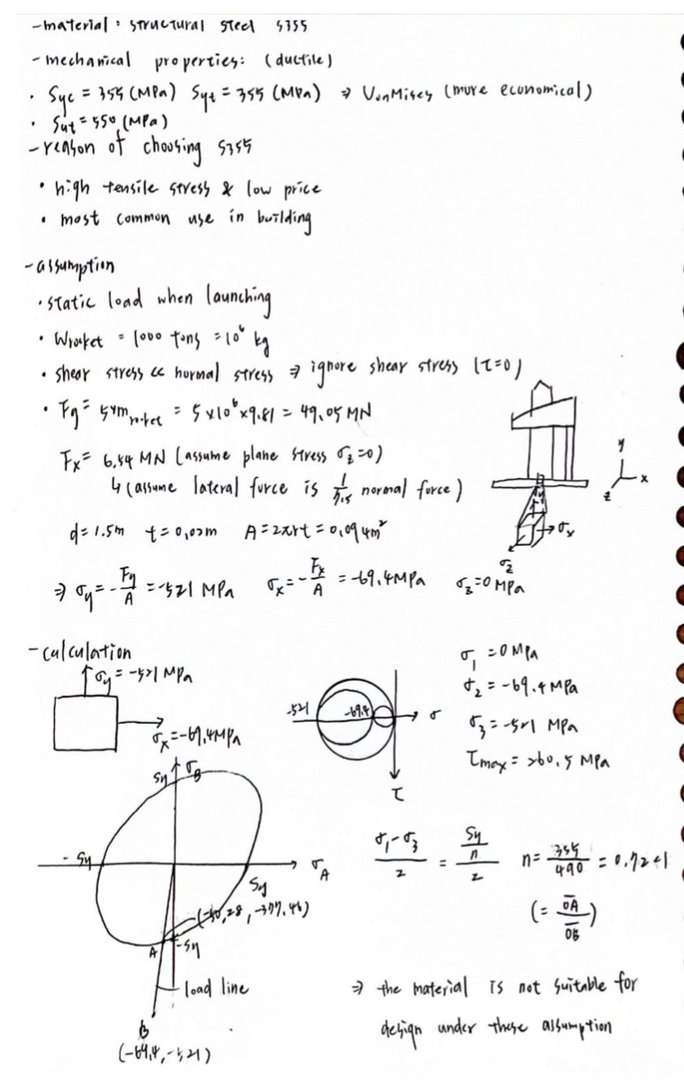 -material : structural steel S355
-mechanical properties: (ductile)
· Syc = 355 (MPa) Syt = 355 (MPa) ⇒ VonMises (more economical)
· Sut = 550 (MPa)
-reason of choosing S355
· high tensile stress & low price
· most common use in building
-assumption
· static load when launching
· Wrocket = 1000 tons = 10⁶ kg
· shear stress << normal stress ⇒ ignore shear stress (τ=0)
· Fy = 5×m rocket = 5×10⁶×9.81 = 49.05 MN
Fx = 6.54 MN (assume plane stress σz=0)
↳ (assume lateral force is 1/7.5 normal force)
d = 1.5m t = 0.02m A = 2πrt = 0.094m²
y
x
z
σx
σz
⇒ σy = -Fy/A = -521 MPa σx = -Fx/A = -69.4MPa σz=0MPa
-calculation
σy = -521 MPa
σx = -69.4MPa
-521 -69.4 σ
τ
σ1 = 0MPa
σ2 = -69.4 MPa
σ3 = -521 MPa
τmax = 260.5 MPa
Sy σB
-Sy σA
Sy
A -Sy
load line
B
(-69.4, -521)
(σ1-σ3)/2 = (Sy/n)/2 n = 355/490 = 0.72 <1
(= OA/OB)
⇒ the material is not suitable for
design under these assumption